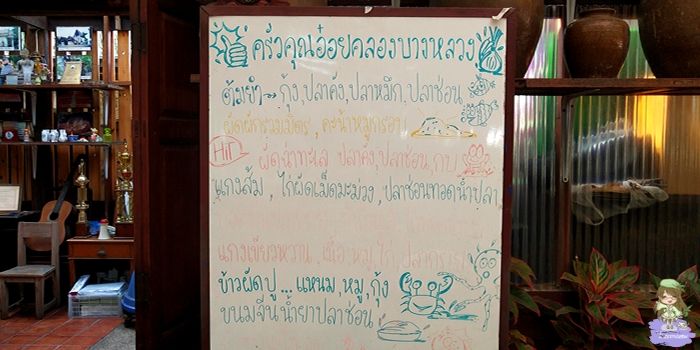 ครัวคุณอ๋อยคลองบางหลวง
ต้มยำ→กุ้ง,ปลาคัง,ปลาหมึก,ปลาช่อน
ผัดผักรวมมิตร,คะน้าหมูกรอบ
Hit
ผัดฉ่าทะเล ปลาคัง,ปลาช่อน,กบ
แกงส้ม,ไก่ผัดเม็ดมะม่วง,ปลาช่อนทอดน้ำปลา
แกงเขียวหวาน,เนื้อ,หมู,ไก่,ปลากราย
ข้าวผัดปู...แหนม,หมู,กุ้ง
ขนมจีนน้ำยาปลาช่อน